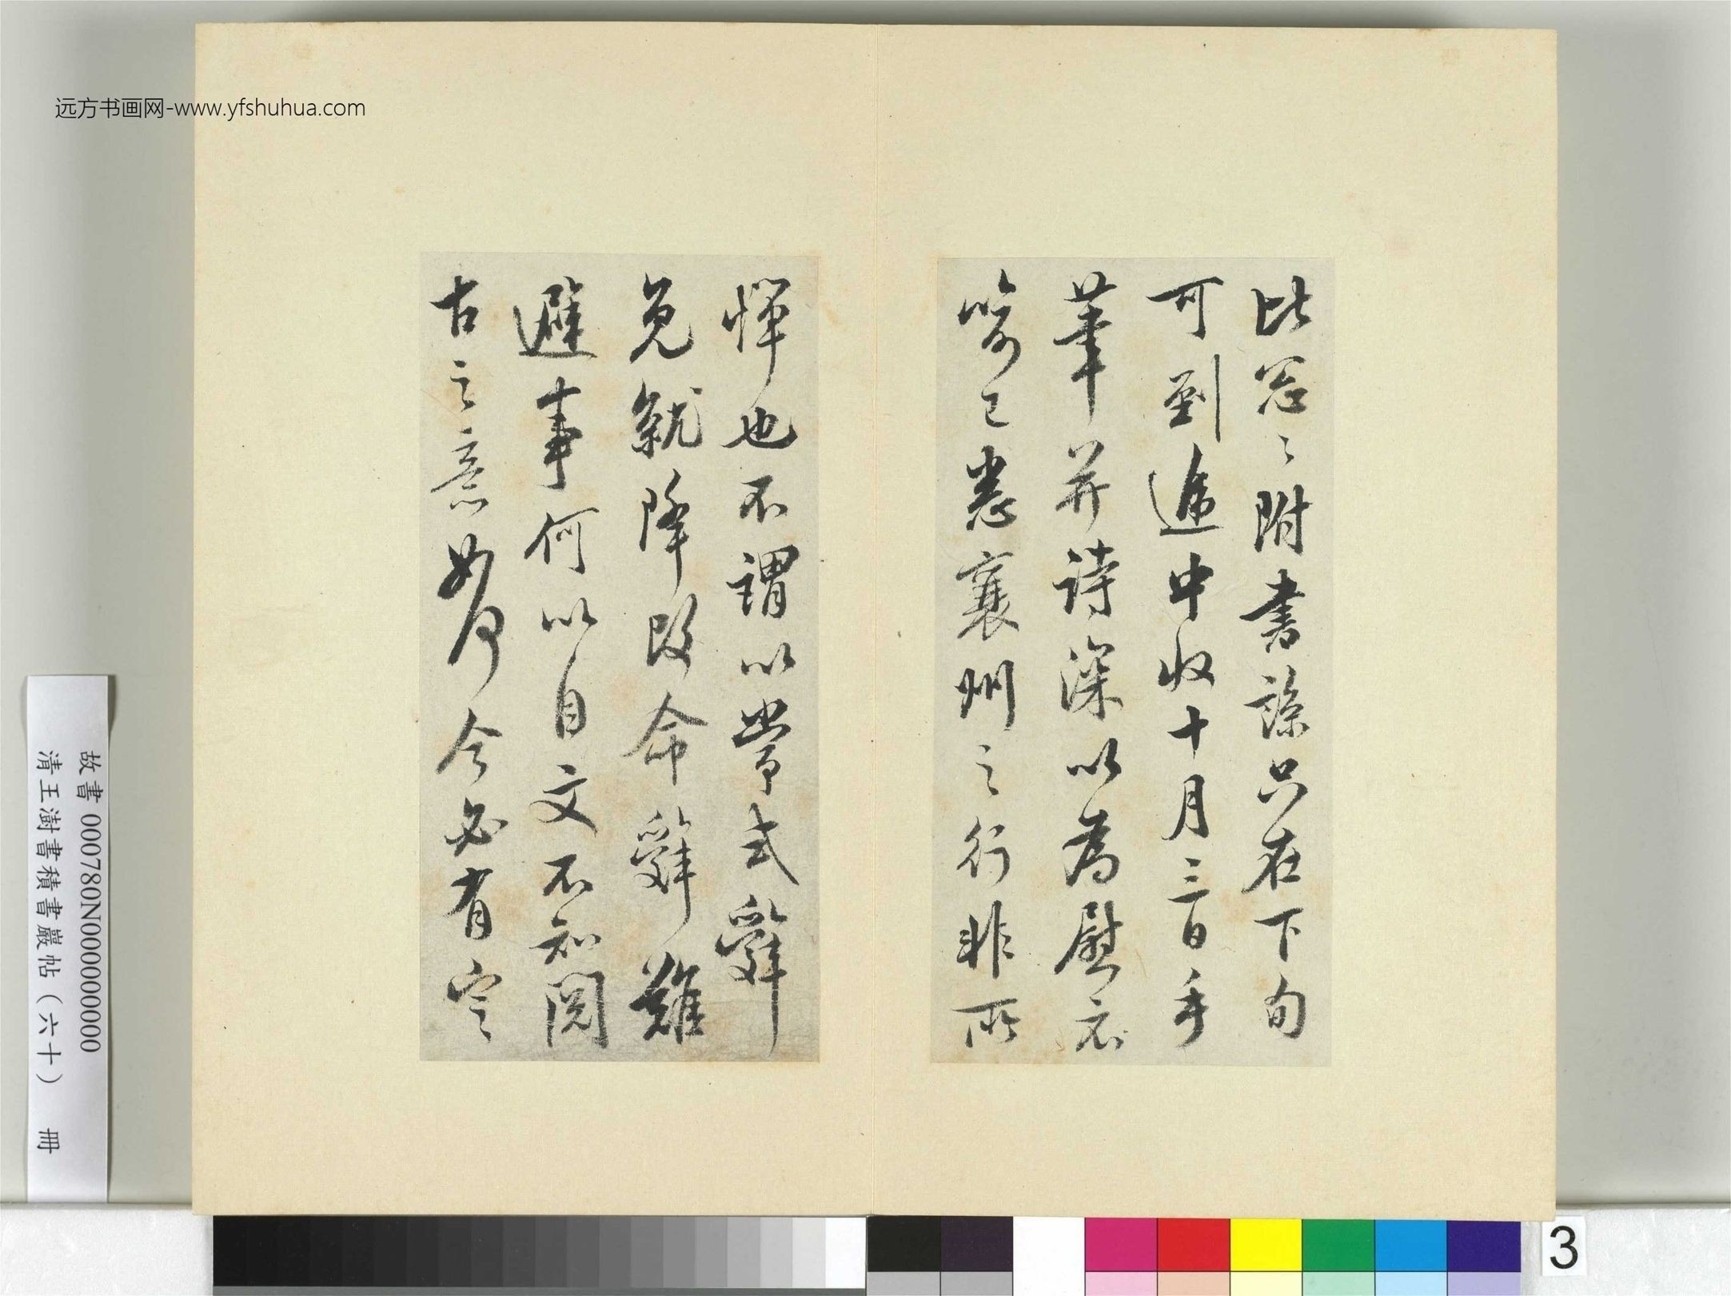 远方书画网-www.yfshuhua.com
比忩〻附書諒只在下旬
可到遞中收十月三日手
筆并詩深以為慰示
喻已悉襄州之行非所
憚也不謂以常式辭
免就降改命辭難
避事何以自文不知閱
古之意如何今必有定
故書 000780N000000000
清王澍書積書巖帖(六十) 冊
3